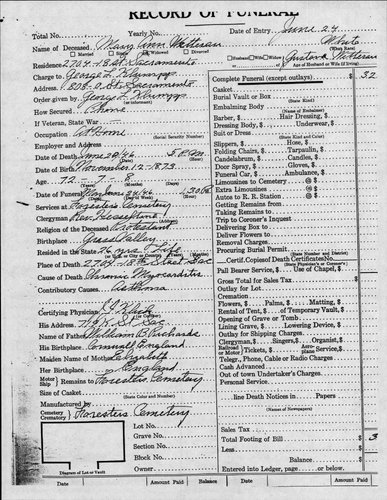 RECORD OF FUNERAL
Total No. Yearly No. Date of Entry June 24
Name of Deceased Mary Ann Wetteran White
Married Single Widowed Divorced Husband Wife Widow of Gustave Wetteran
Residence 2704-18 St Sacramento
Charge to George L. Klumpp
Address 808-O St. Sacramento
Order given by George L. Klumpp
How Secured Phone
If Veteran, State War
Occupation At Home
(Social Security Number)
Employer and Address
Date of Death June 20/46 5 P.M.
Date of Birth November 12-1873
Age 72-7-
(Years) (Months) (Days)
Date of Funeral
Services at Foresters Cemetery
Clergyman Rev.
Religion of the Deceased Protestant
Birthplace Grass Valley
Resided in the State Life
Place of Death 2704-18th Street Sac
Cause of Death Chronic Myocarditis
Contributory Causes Asthma
Certifying Physician
His Address
Name of Father William Richards
His Birthplace Cornwall England
Maiden Name of Mother Elizabeth
Her Birthplace England
Motor Ship Remains to Foresters Cemetery
Size of Casket
(State Color and Number)
Manufactured by
Cemetery Crematory Foresters Cemetery
Lot No.
Grave No.
Section No.
Block No.
Owner
Diagram of Lot or Vault
Complete Funeral (except outlays) $ 32
Casket
Burial Vault or Box
(State Kind)
Embalming Body
Barber, Hair Dressing,
Dressing Body, Underwear,
Suit or Dress
(State Kind and Color)
Slippers, Hose,
Folding Chairs, Tarpaulin,
Candelabrum, Candles,
Door Spray, Gloves,
Funeral Car, Ambulance,
Limousines to Cemetery
Extra Limousines
Autos to R. R. Station
Getting Remains from
Taking Remains to
Trip to Coroner's Inquest
Delivering Box to
Deliver Flowers to
Removal Charges
Procuring Burial Permit
(State Number and District)
Certif. Copies of Death Certificates No.
Pall Bearer Service, Use of Chapel,
Gross Total to Sales Tax
Outlay for Lot
Cremation
Flowers, Palms, Matting,
Rental of Tent, of Temporary Vault,
Opening of Grave or Tomb
Lining Grave, Lowering Device,
Outlay for Shipping Charges
Clergyman, Singers, Organist,
Railroad or Motor Tickets, Auto Plane Service,
Telegr., Phone, Cable or Radio Charges
Cash Advanced
Out of town Undertaker's Charges
Personal Service
line Death Notices in Papers
(Number)
Sales Tax
Total Footing of Bill $ 3
Less
Balance
Entered into Ledger, page or below.
Date Amount Paid Balance Date Amount Paid Balance